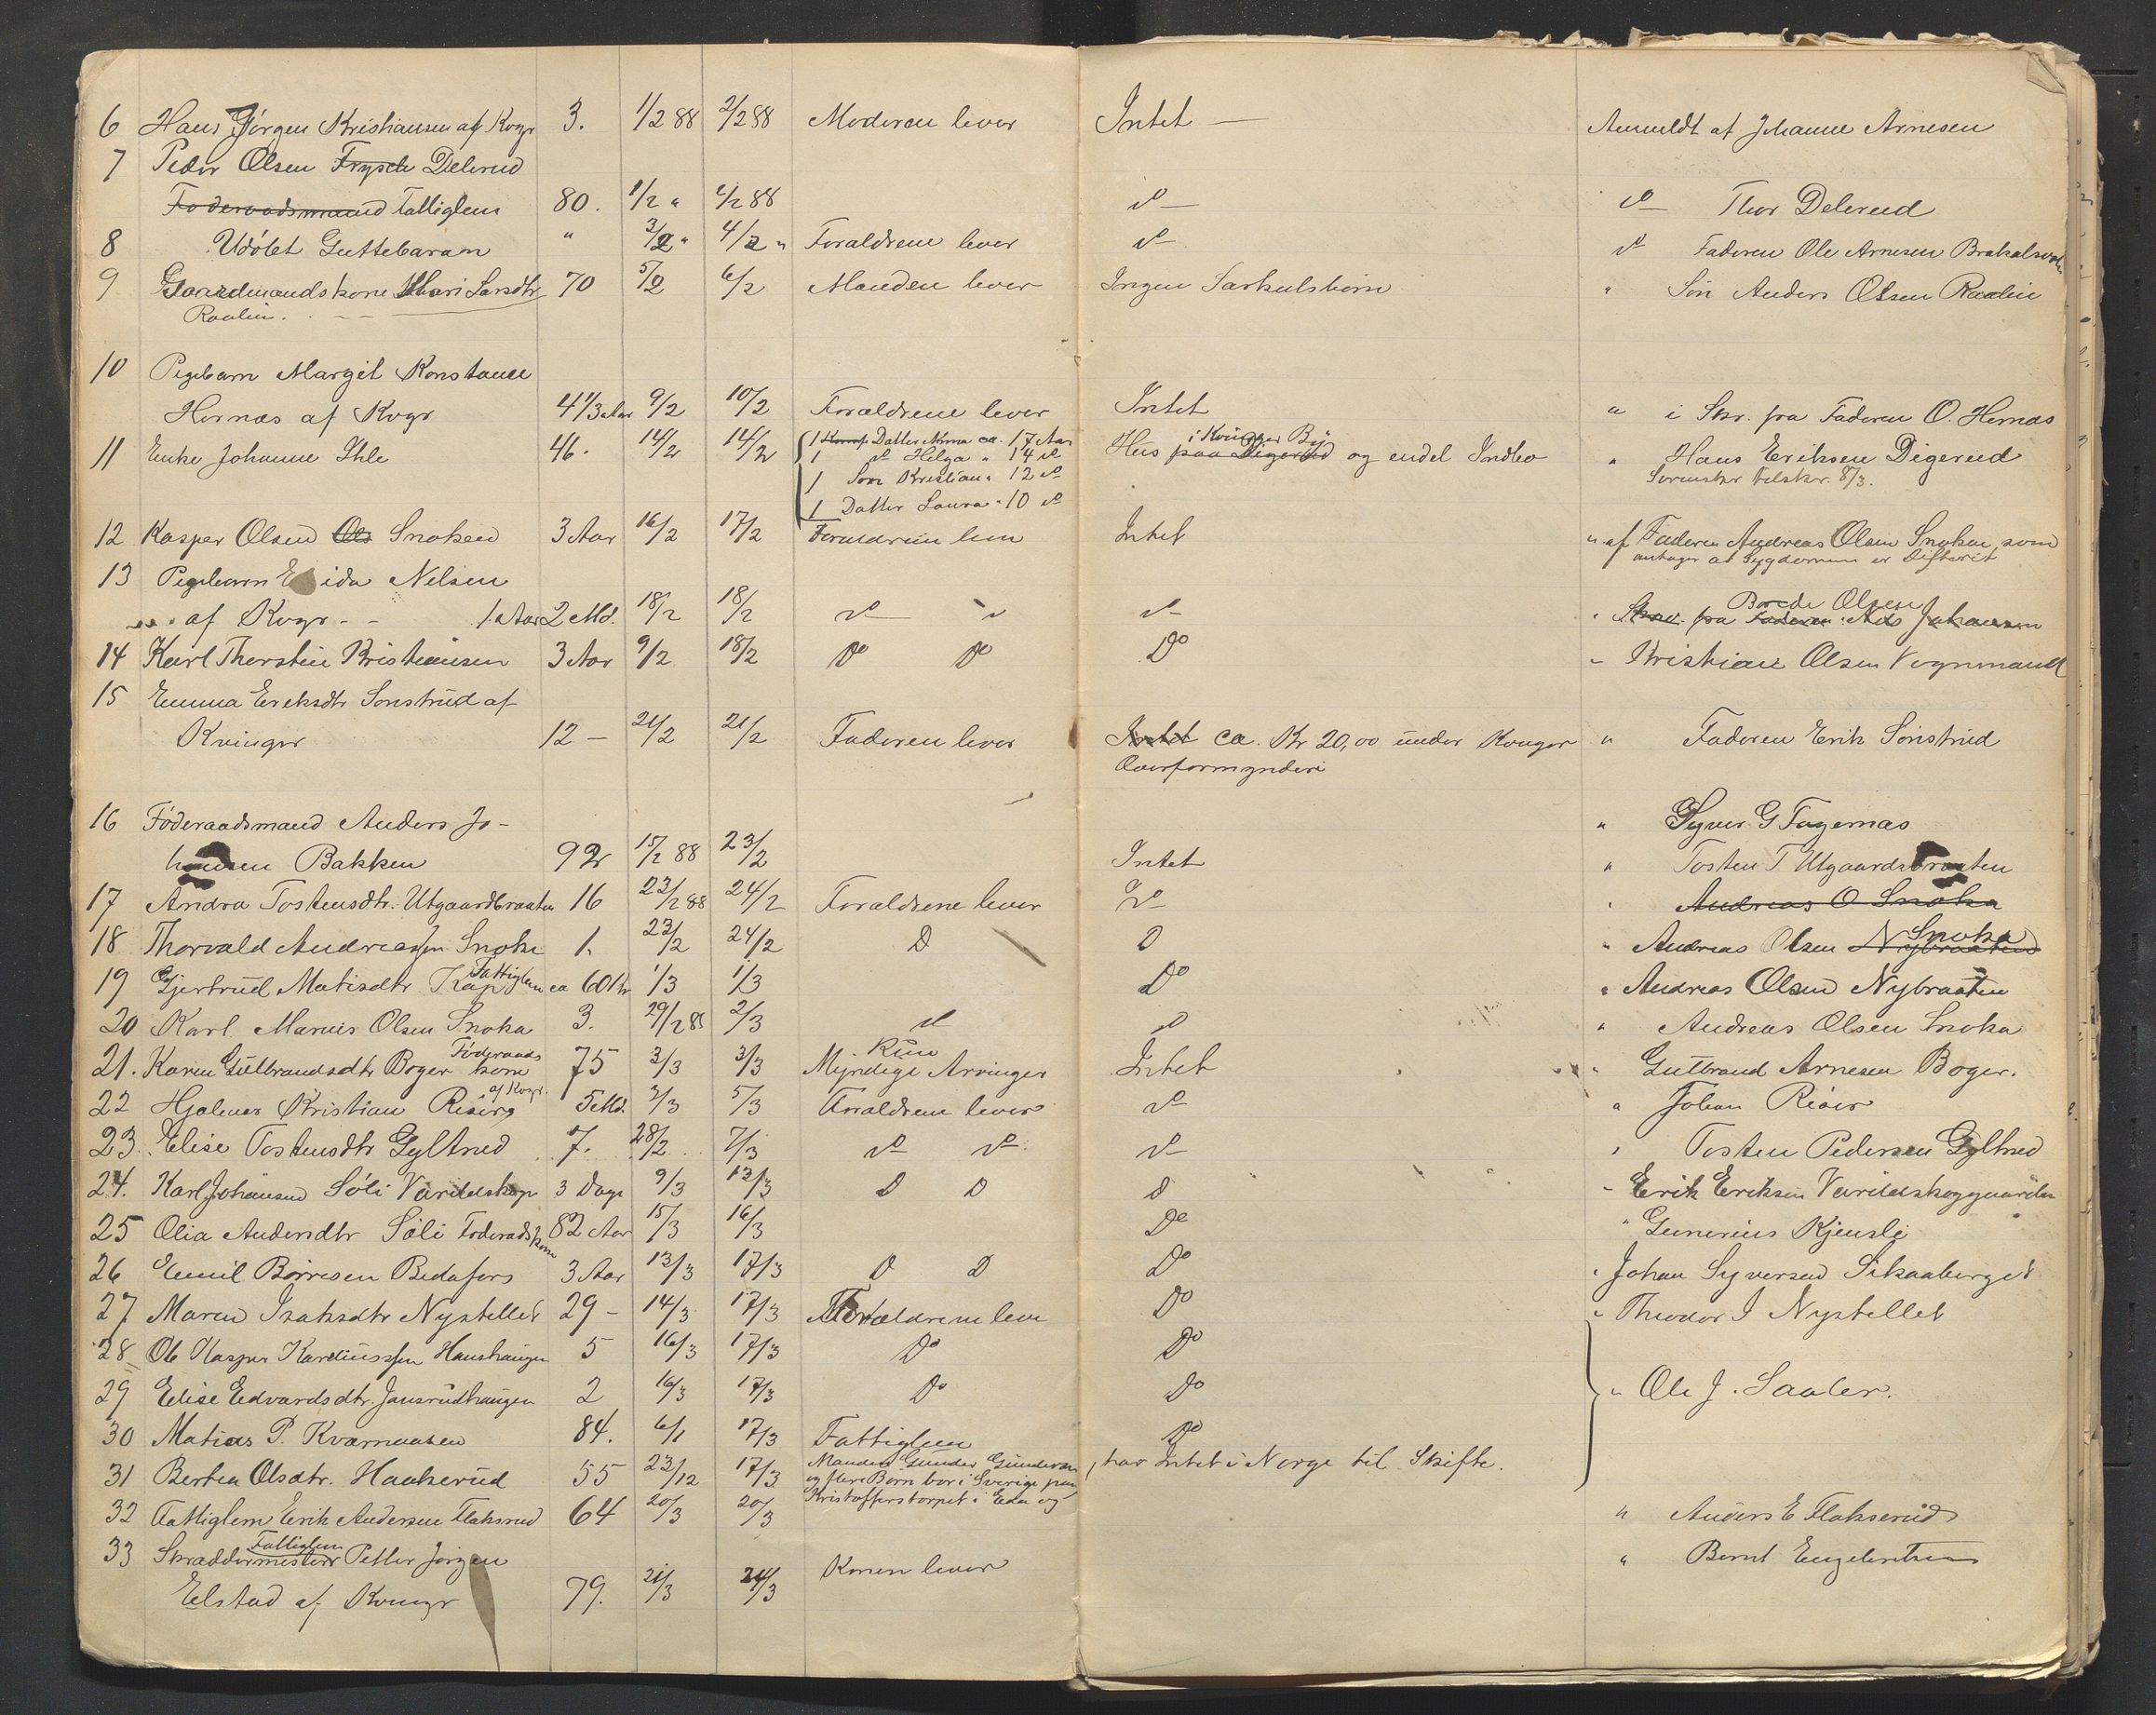 6 Hans Jørgen Kristiansen af Kvgr 3. 1/2 88 2/2 88 Moderen lever Intet — Anmeldt af Johanne Arnesen
7 Peder Olsen Frysch Delerud
Føderaadsmand Fattiglem 80. 1/2 " 4/2 88 do — do — Thor Delerud
8 Udøbt Guttebarn " 3/2 " 4/2 " Forældrene lever do — do Faderen Ole Arnesen
9 Gaardmandskone Mari Larsdtr 70 5/2 6/2 Manden lever Ingen Særkulsbörn " Søn Anders Olsen Raalin
Raalin.
10 Pigebarn Margit Konstance
Hernæs af Kvgr 4 1/3 Aar 9/2 10/2 Forældrene lever Intet " i Skr. fra Faderen O. Hernæs
11 Enke Johanne Ihle 46. 14/2 14/2 1 Datter Anna ca. 17 Aar Hus paa Digerud i Kvinger By og endel Indbo " Hans Eriksen Digerud
1 do Helga " 14 do Sorenskr tilskr. 8/3.
1 Søn Kristian " 12 do
1 Datter Laura " 10 do
12 Kasper Olsen Ols Snoken 3 Aar 16/2 17/2 Forældrene leve Intet " af Faderen Andreas Olsen Snoken, som
antager at Sygdommen er Difterit
13 Pigebarn E ida Nelsen
af Kvgr - - 1 Aar 2 Md. 18/2 18/2 do do — " Skr. fra Faderen Nels Johansen Brede Olsen
14 Karl Thorstein Kristiansen 3 Aar 9/2 18/2 Do Do Do " Kristian Olsen Vognmand
15 Emma Eriksdtr Sonstrud af
Kvinger 12 — 21/2 21/2 Faderen lever Intet ca. Kr 20,00 under Kvinger " Faderen Erik Sonstrud
Overformynderi
16 Föderaadsmand Anders Jo- " Syver G Fagernæs
hansen Bakken 92 15/2 88 23/2 Intet " Tosten T. Utgaardsbraaten
17 Andra Tostensdtr. Utgaardbraaten 16 23/2 88 24/2 Forældrene lever Do " Andreas O Snoka
18 Thorvald Andreassen Snoka 1. 23/2 24/2 D D " Andreas Olsen Nybraaten Snoka
19 Gjertrud Matisdtr Kap Fattiglem ca 60 Aar 1/3 1/3 Do " Andreas Olsen Nybraaten
20 Karl Marius Olsen Snoka 3. 29/2 88 2/3 do do " Andreas Olsen Snoka
21. Karen Gulbrandsdtr Boger Föderaads kone 75 3/3 3/3 Kun Myndige Arvinger Intet " Gulbrand Arnesen Boger.
22 Hjalmar Kristian Risiøs af Kvgr. 5 Md. 3/3 5/3 Forældrene lever do " Johan
23. Elise Tostensdtr Gyltrud 7. 28/2 7/3 do do do " Tosten Pedersen Gyltrud
24. Karl Johansen Söli Varildskog 3 Dage 9/3 13/3 D D D " Erik Eriksen Varildskoggaarden
25 Olia Andersdtr Söli Foderadskone 82 Aar 15/3 16/3 Do " Gunerius Kjensli
26 Emil Børresen Bedafors 3 Aar 13/3 17/3 D D Do " Johan Syversen Sikaaberget
27 Maren Isaksdtr Nystellet 29 — 14/3 17/3 Forældrene leve Do " Theodor I Nystellet
28 Ole Kasper Kareliussen Haushaugen 5 16/3 17/3 Do Do
29 Elise Edvardsdtr. Jansrudhaugen 2 16/3 17/3 Do Do " Ole J. Saaler.
30 Matias P. Kvarnaasen 84. 6/1 17/3 Fattiglem Do
31 Berthe Olsdtr. Haakerud 55 23/12 17/3 Manden Gunder Gundersen , har Intet i Norge til Skifte.
og flere Børn bor i Sverige paa
Kristofferstorpet i Eda og
32 Fattiglem Erik Andersen Flakserud 64 20/3 20/3 " Anders E Flakserud
33 Skræddermester Fattiglem Petter Jörgen " Bernt Engebretsen
Elstad af Kvinger 79. 21/3 24/3 Konen lever